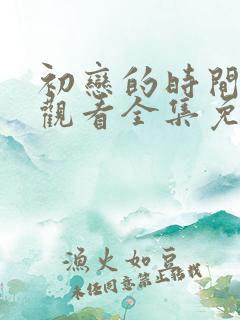 初戀的時間
觀看全集免
漁火如豆
未任同意禁止活载